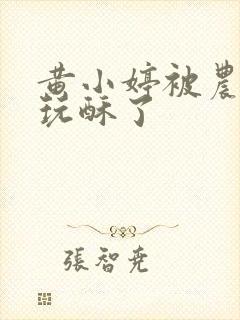 黄小婷被農
玩酥了
張智堯